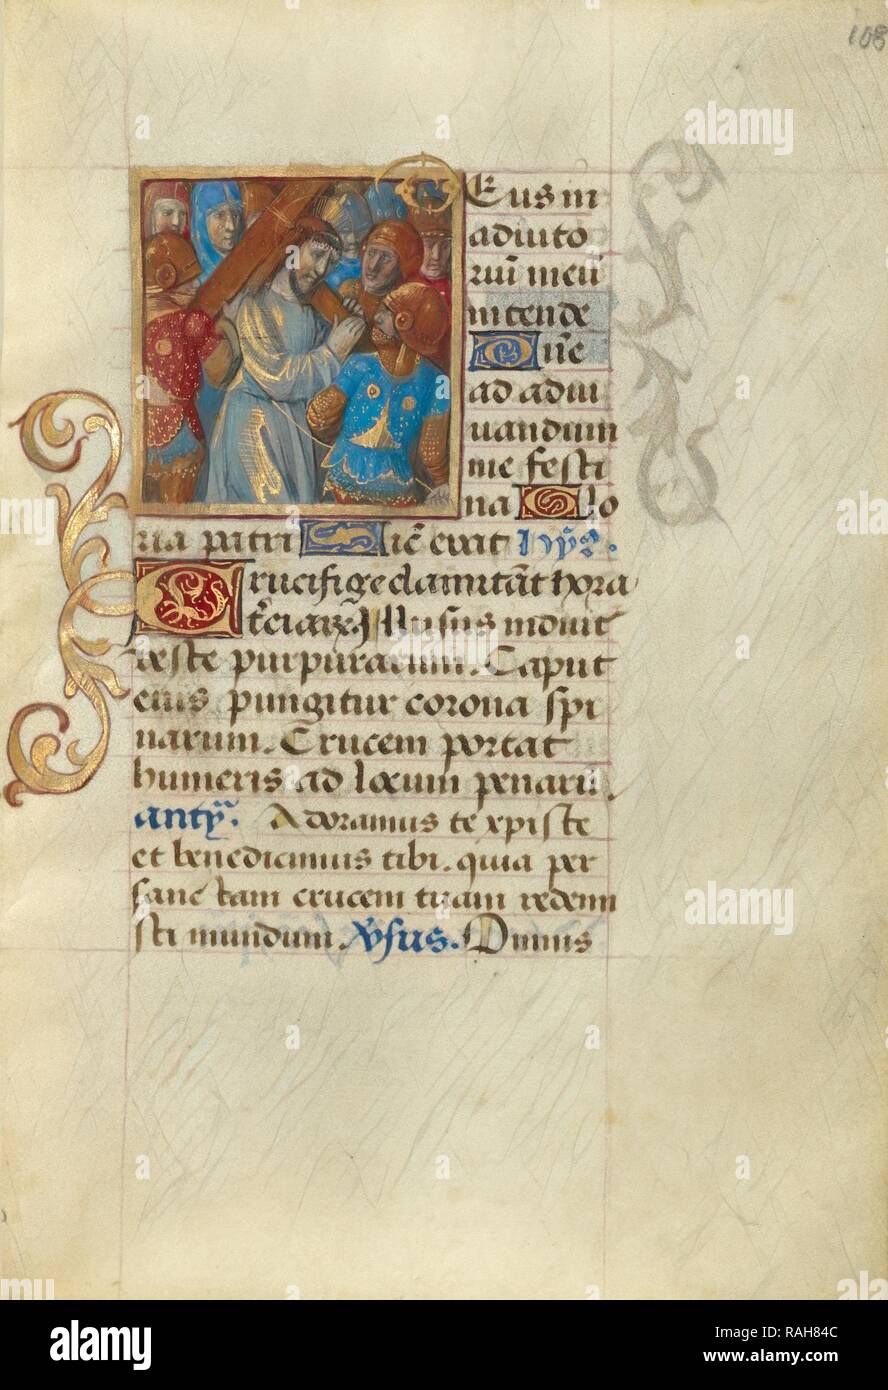 108
Eus in
adiuto
riū meū
intende
Dn̄e
ad adiu
uandum
me festi
na Glo
ria patri Sic̄ erat Ymꝰ.
Crucifige clamitāt hora
Illusus induit
veste purpurarum. Caput
eius pungitur corona spi
narum. Crucem portat
humeris ad locum penarū
anty. Adoramus te xpiste
et benedicimus tibi. quia per
sanctam crucem tuam redemi
sti mundum. Vsus. Dnīus
alamy
alamy
alamy
Image ID: RAH84C
www.alamy.com